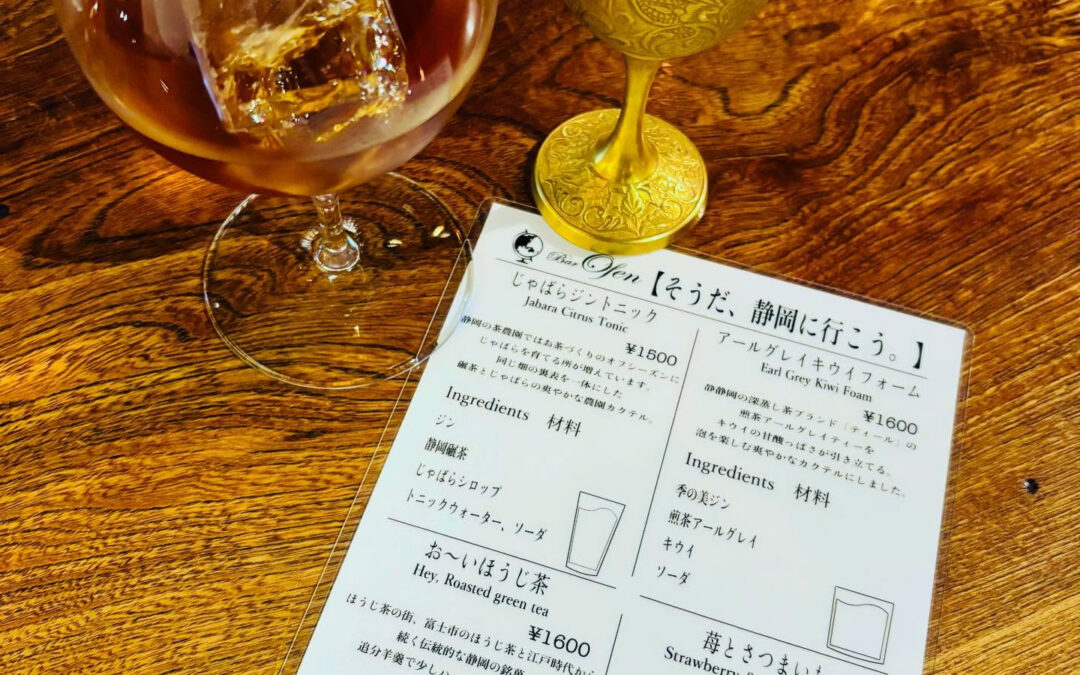 Bar Osen【そうだ、静岡に行こう。】
じゃばらジントニック
Jabara Citrus Tonic
¥1500
静岡の茶農園ではお茶づくりのオフシーズンに
じゃばらを育てる所が増えています。
同じ畑の裏表を一体にした
碾茶とじゃばらの爽やかな農園カクテル。
Ingredients 材料
ジン
静岡碾茶
じゃばらシロップ
トニックウォーター、ソーダ
アールグレイキウイフォーム
Earl Grey Kiwi Foam
¥1600
静静岡の深蒸し茶ブランド「ティール」の
煎茶アールグレイティーを
キウイの甘酸っぱさが引き立てる。
泡を楽しむ爽やかなカクテルにしました。
Ingredients 材料
季の美ジン
煎茶アールグレイ
キウイ
ソーダ
お〜いほうじ茶
Hey, Roasted green tea
¥1600
ほうじ茶の街、富士市のほうじ茶と江戸時代から
続く伝統的な静岡の銘菓
追分羊羹で少し
苺とさつまい
Strawberry